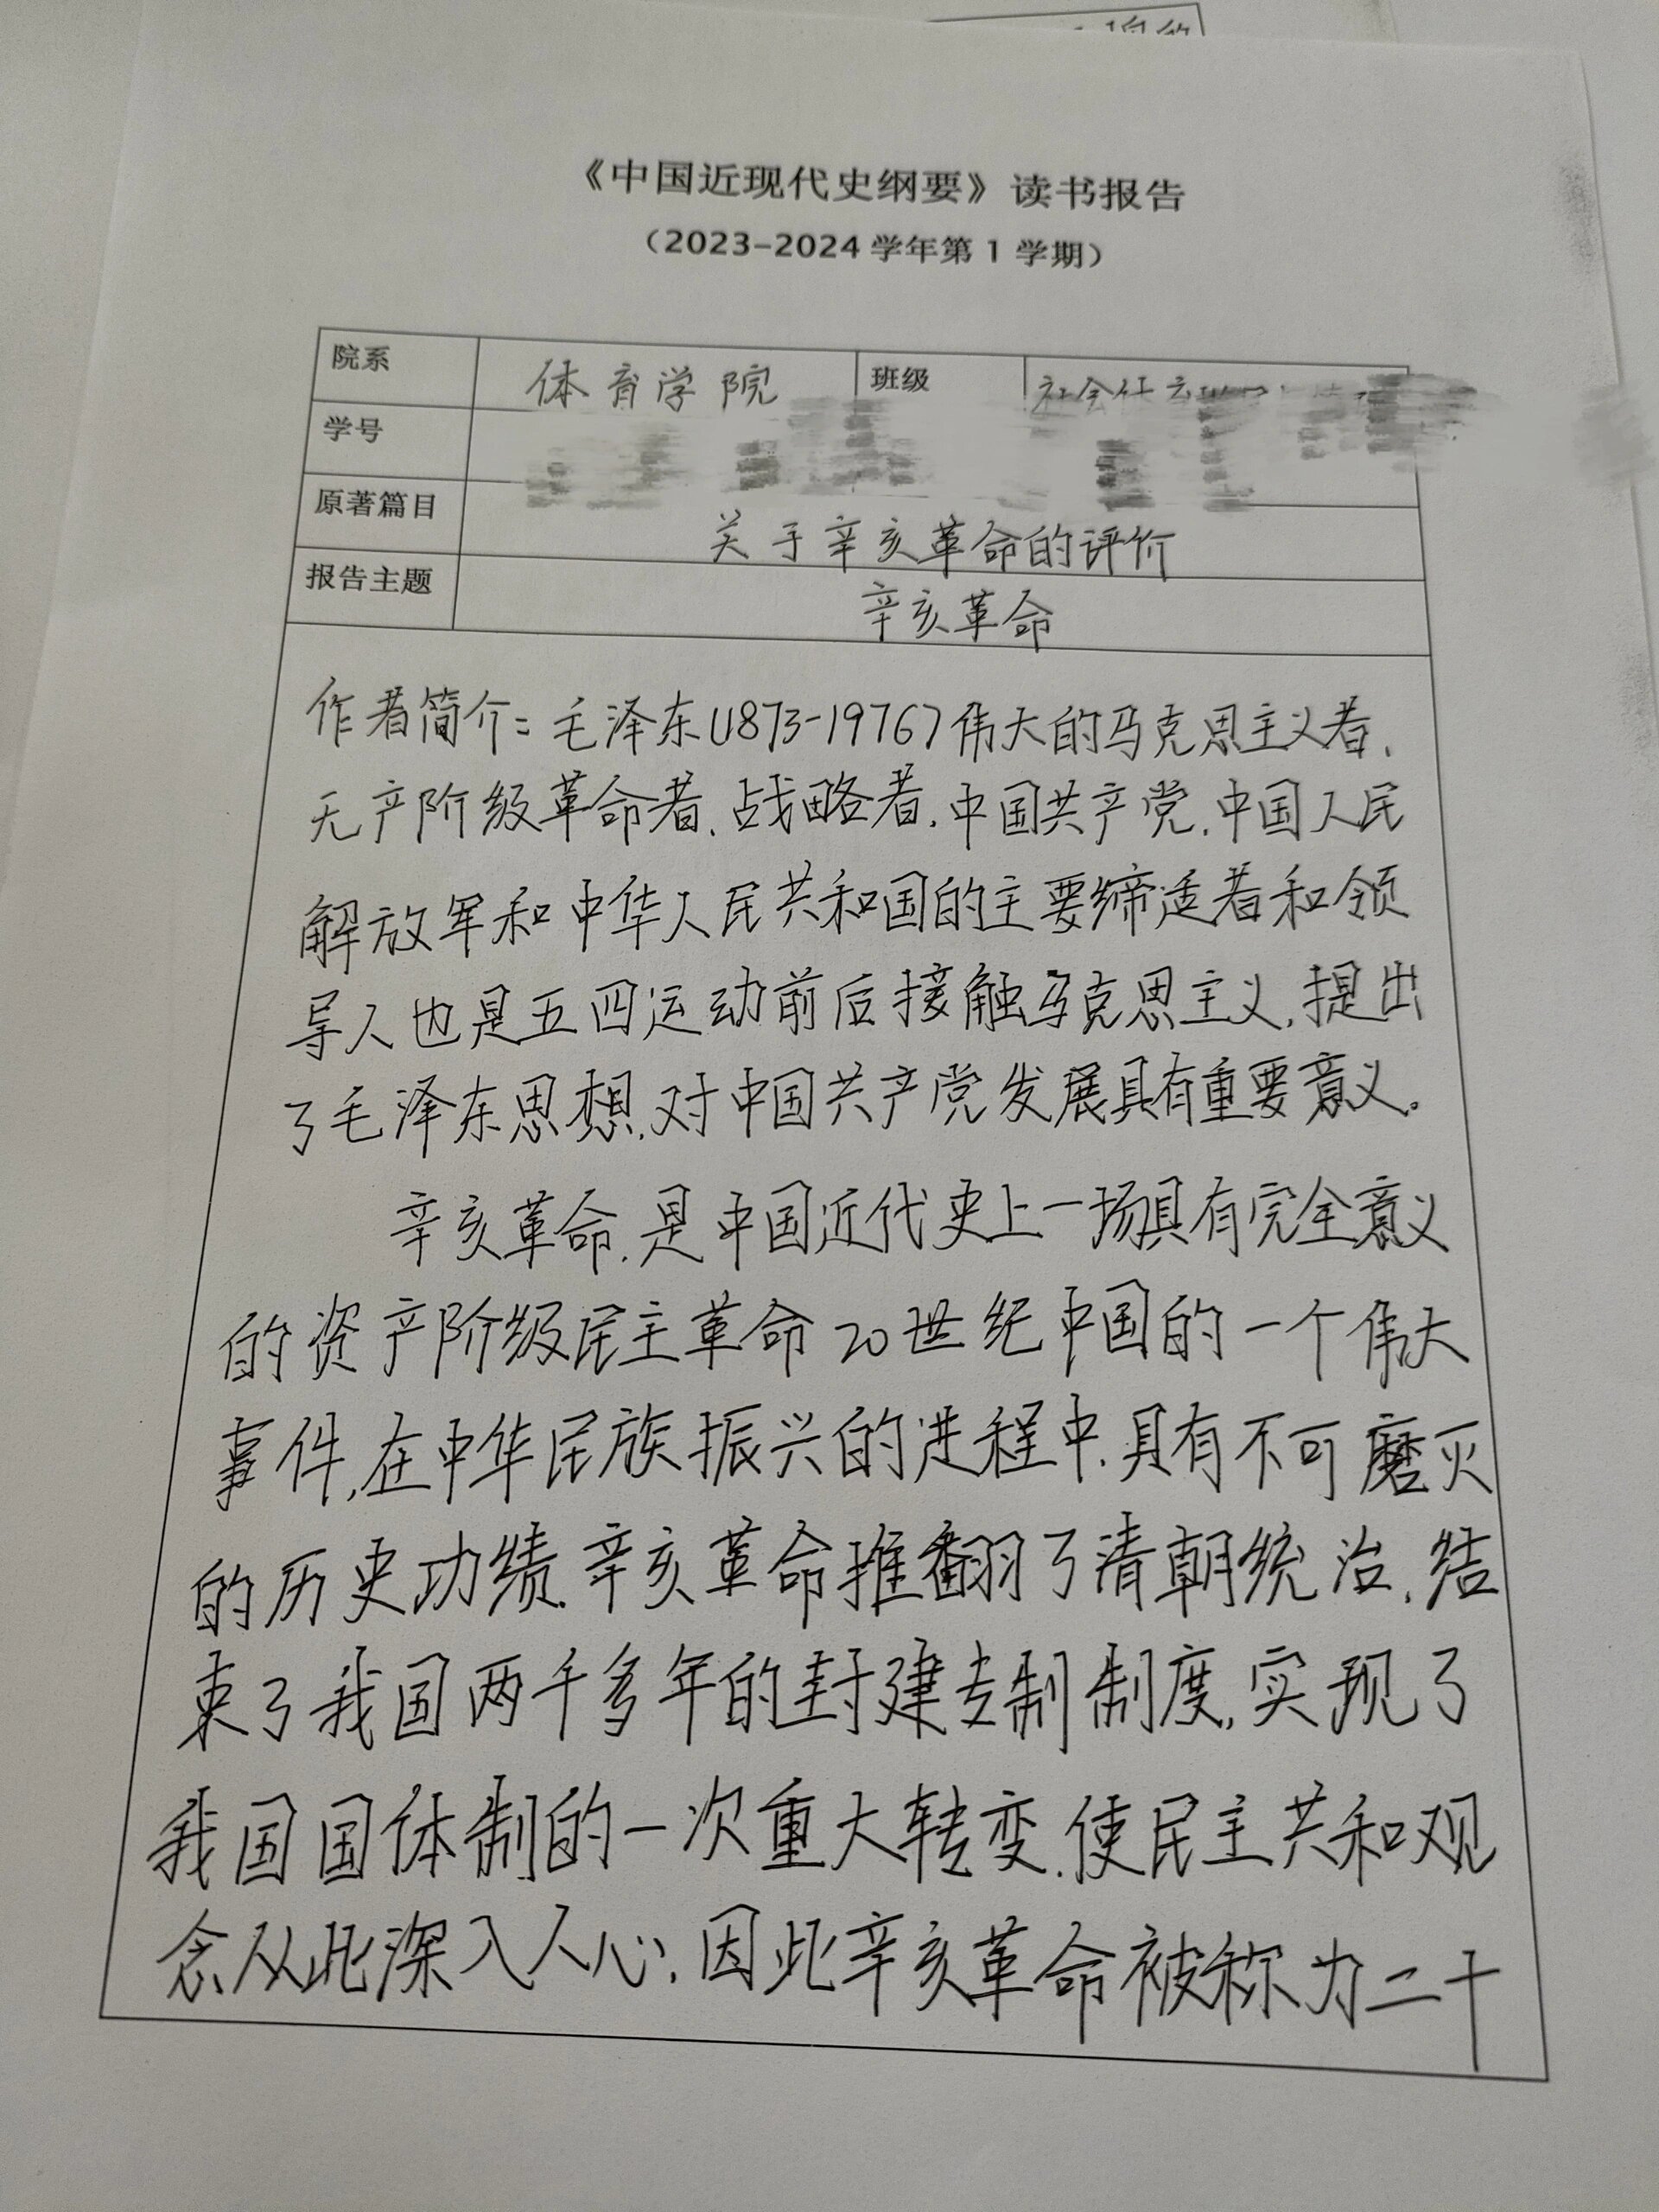 《中国近现代史纲要》读书报告
（2023-2024 学年第 1 学期）
院系 体育学院 班级 社会体育
学号
原著篇目 关于辛亥革命的评价
报告主题 辛亥革命
作者简介：毛泽东(1873-1976)伟大的马克思主义者、
无产阶级革命者、战略者，中国共产党、中国人民
解放军和中华人民共和国的主要缔造者和领
导人也是五四运动前后接触马克思主义，提出
了毛泽东思想，对中国共产党发展具有重要意义。
辛亥革命，是中国近代史上一场具有完全意义
的资产阶级民主革命20世纪中国的一个伟大
事件，在中华民族振兴的进程中，具有不可磨灭
的历史功绩，辛亥革命推翻了清朝统治，结
束了我国两千多年的封建专制制度，实现了
我国国体制的一次重大转变，使民主共和观
念从此深入人心，因此辛亥革命被称为二十